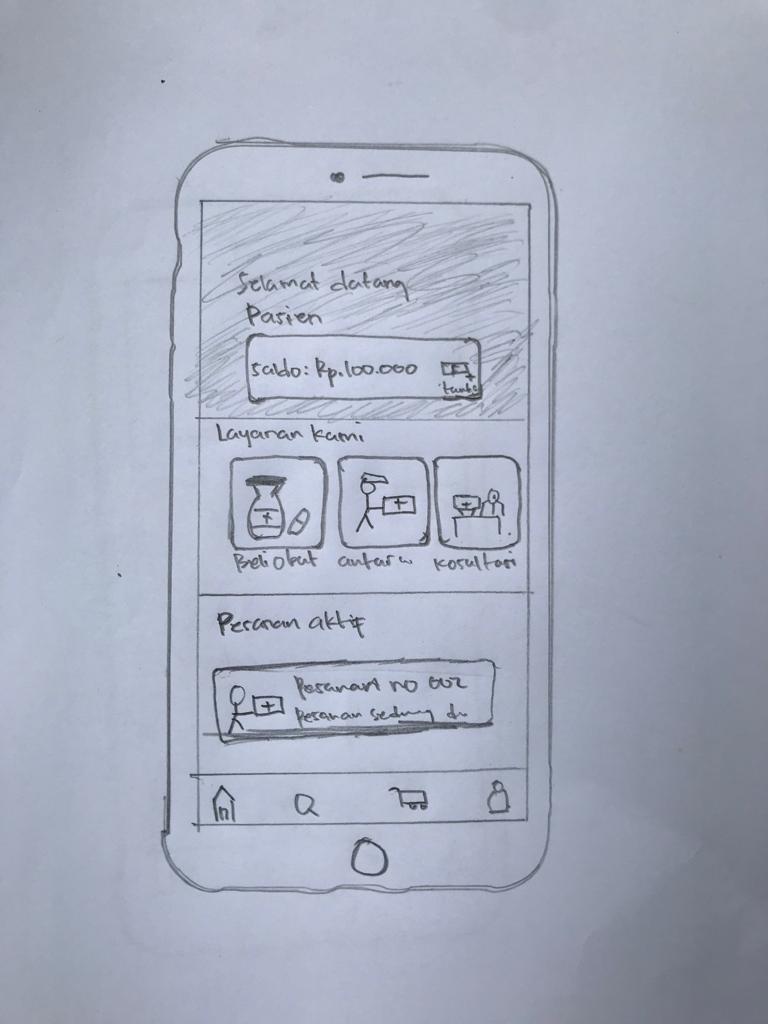 Selamat datang
Pasien
Saldo: Rp.100.000
Layanan kami
Beli obat
antar
kosultasi
Pesanan aktif
Pesanan no 002
Pesanan sedang